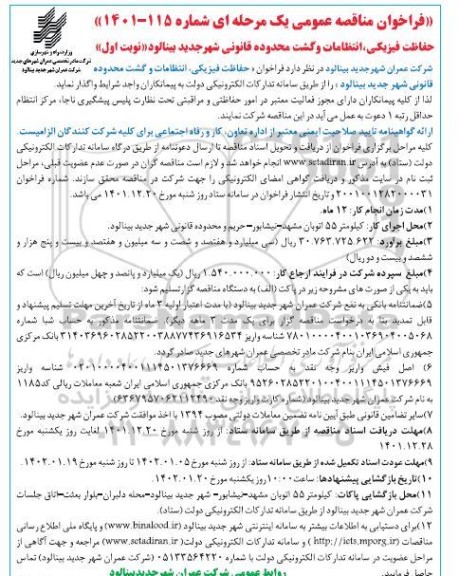 «فراخوان مناقصه عمومی یک مرحله ای شماره ۱۱۵-۱۴۰۱»
وزارت راه و شهرسازی
شرکت مادر تخصصی عمران شهرهای جدید
شرکت عمران شهر جدید بینالود
حفاظت فیزیکی، انتظامات وگشت محدوده قانونی شهرجدید بینالود«نوبت اول»
شرکت عمران شهر جدید بینالود در نظر دارد فراخوان « حفاظت فیزیکی، انتظامات و گشت محدوده
قانونی شهر جدید بینالود » را از طریق سامانه تدارکات الکترونیکی دولت به پیمانکاران واجد شرایط واگذار نماید.
لذا از کلیه پیمانکاران دارای مجوز فعالیت معتبر در امور حفاظتی و مراقبتی تحت نظارت پلیس پیشگیری ناجا، مرکز انتظام
حداقل رتبه ۱ دعوت به عمل می آید در این مناقصه شرکت نمایند.
ارائه گواهینامه تایید صلاحیت ایمنی معتبر از اداره تعاون، کار و رفاه اجتماعی برای کلیه شرکت کنندگان الزامیست.
کلیه مراحل برگزاری فراخوان از دریافت و تحویل اسناد مناقصه تا ارسال دعوتنامه از طریق درگاه سامانه تدارکات الکترونیکی
دولت (ستاد) به آدرس www.setadiran.ir انجام خواهد شد و لازم است مناقصه گران در صورت عدم عضویت قبلی، مراحل
ثبت نام در سایت مذکور و دریافت گواهی امضای الکترونیکی را جهت شرکت در مناقصه محقق سازند. شماره فراخوان
و تاریخ انتشار فراخوان در سامانه ستاد روز شنبه مورخ ۱۴۰۱.۱۲.۲۰ می باشد.
۱)مدت زمان انجام کار: ۱۲ ماه.
۲)محل اجرای کار: کیلومتر ۵۵ اتوبان مشهد-نیشابور- حریم و محدوده قانونی شهر جدید بینالود.
۳)مبلغ برآورد: ۳۰.۷۶۳.۷۲۵.۶۲۲ ریال (سی میلیارد و هفتصد و شصت و سه میلیون و هفتصد و بیست و پنج هزار و
ششصد و بیست و دو ریال)
۴)مبلغ سپرده شرکت در فرایند ارجاع کار: ۱.۵۴۰.۰۰۰.۰۰۰ ریال (یک میلیارد و پانصد و چهل میلیون ریال) است که
باید به یکی از صورت های مشروحه زیر در پاکت (الف) به دستگاه مناقصه گزار تسلیم شود:
۵)ضمانتنامه بانکی به نفع شرکت عمران شهر جدید بینالود (با مدت اعتبار اولیه ۳ ماه از تاریخ آخرین مهلت تسلیم پیشنهاد و
قابل تمدید بنا به درخواست مناقصه گزار برای یک مدت ۳ ماهه دیگر). ضمانتنامه مذکور به حساب شبا شماره
شناسه واریز بانک مرکزی
جمهوری اسلامی ایران بنام شرکت مادر تخصصی عمران شهرهای جدید صادر گردد.
۶) اصل فیش واریز وجه نقد به حساب شماره شناسه واریز
بانک مرکزی جمهوری اسلامی ایران شعبه معاملات ریالی کد۱۱۸۵
به نام شرکت عمران شهر جدید بینالود (شماره کارت واریز وجه نقد: )
۷)سایر تضامین قانونی طبق آیین نامه تضمین معاملات دولتی مصوب ۱۳۹۴ با اخذ موافقت شرکت عمران شهر جدید بینالود.
۸)مهلت دریافت اسناد مناقصه از طریق سامانه ستاد: از روز شنبه مورخ ۱۴۰۱.۱۲.۲۰ لغایت روز یکشنبه مورخ
۱۴۰۱.۱۲.۲۸
۹)مهلت عودت اسناد تکمیل شده از طریق سامانه ستاد: از روز شنبه مورخ ۱۴۰۲.۰۱.۰۵ تا روز شنبه مورخ ۱۴۰۲.۰۱.۱۹.
۱۰)تاریخ بازگشایی پیشنهادها: ساعت۱۰:۰۰روز یکشنبه مورخ ۱۴۰۲.۰۱.۲۰.
۱۱)محل بازگشایی پاکات: کیلومتر ۵۵ اتوبان مشهد-نیشابور- شهر جدید بینالود-محله دلبران-بلوار بعثت-اتاق جلسات
شرکت عمران شهر جدید بینالود از طریق سامانه تدارکات الکترونیکی دولت(ستاد).
۱۲)برای دستیابی به اطلاعات بیشتر به سامانه اینترنتی شهر جدید بینالود (www.binalood.ir) و پایگاه ملی اطلاع رسانی
مناقصات (http://iets.mporg.ir) و سامانه تدارکات الکترونیکی دولت (www.setadiran.ir) مراجعه و جهت آگاهی از
مراحل عضویت در سامانه تدارکات الکترونیکی دولت با شماره ۰۵۱۳۳۵۶۴۲۲۰ (شرکت عمران شهر جدید بینالود) تماس
حاصل فرمایید.
روابط عمومی شرکت عمران شهرجدیدبینالود